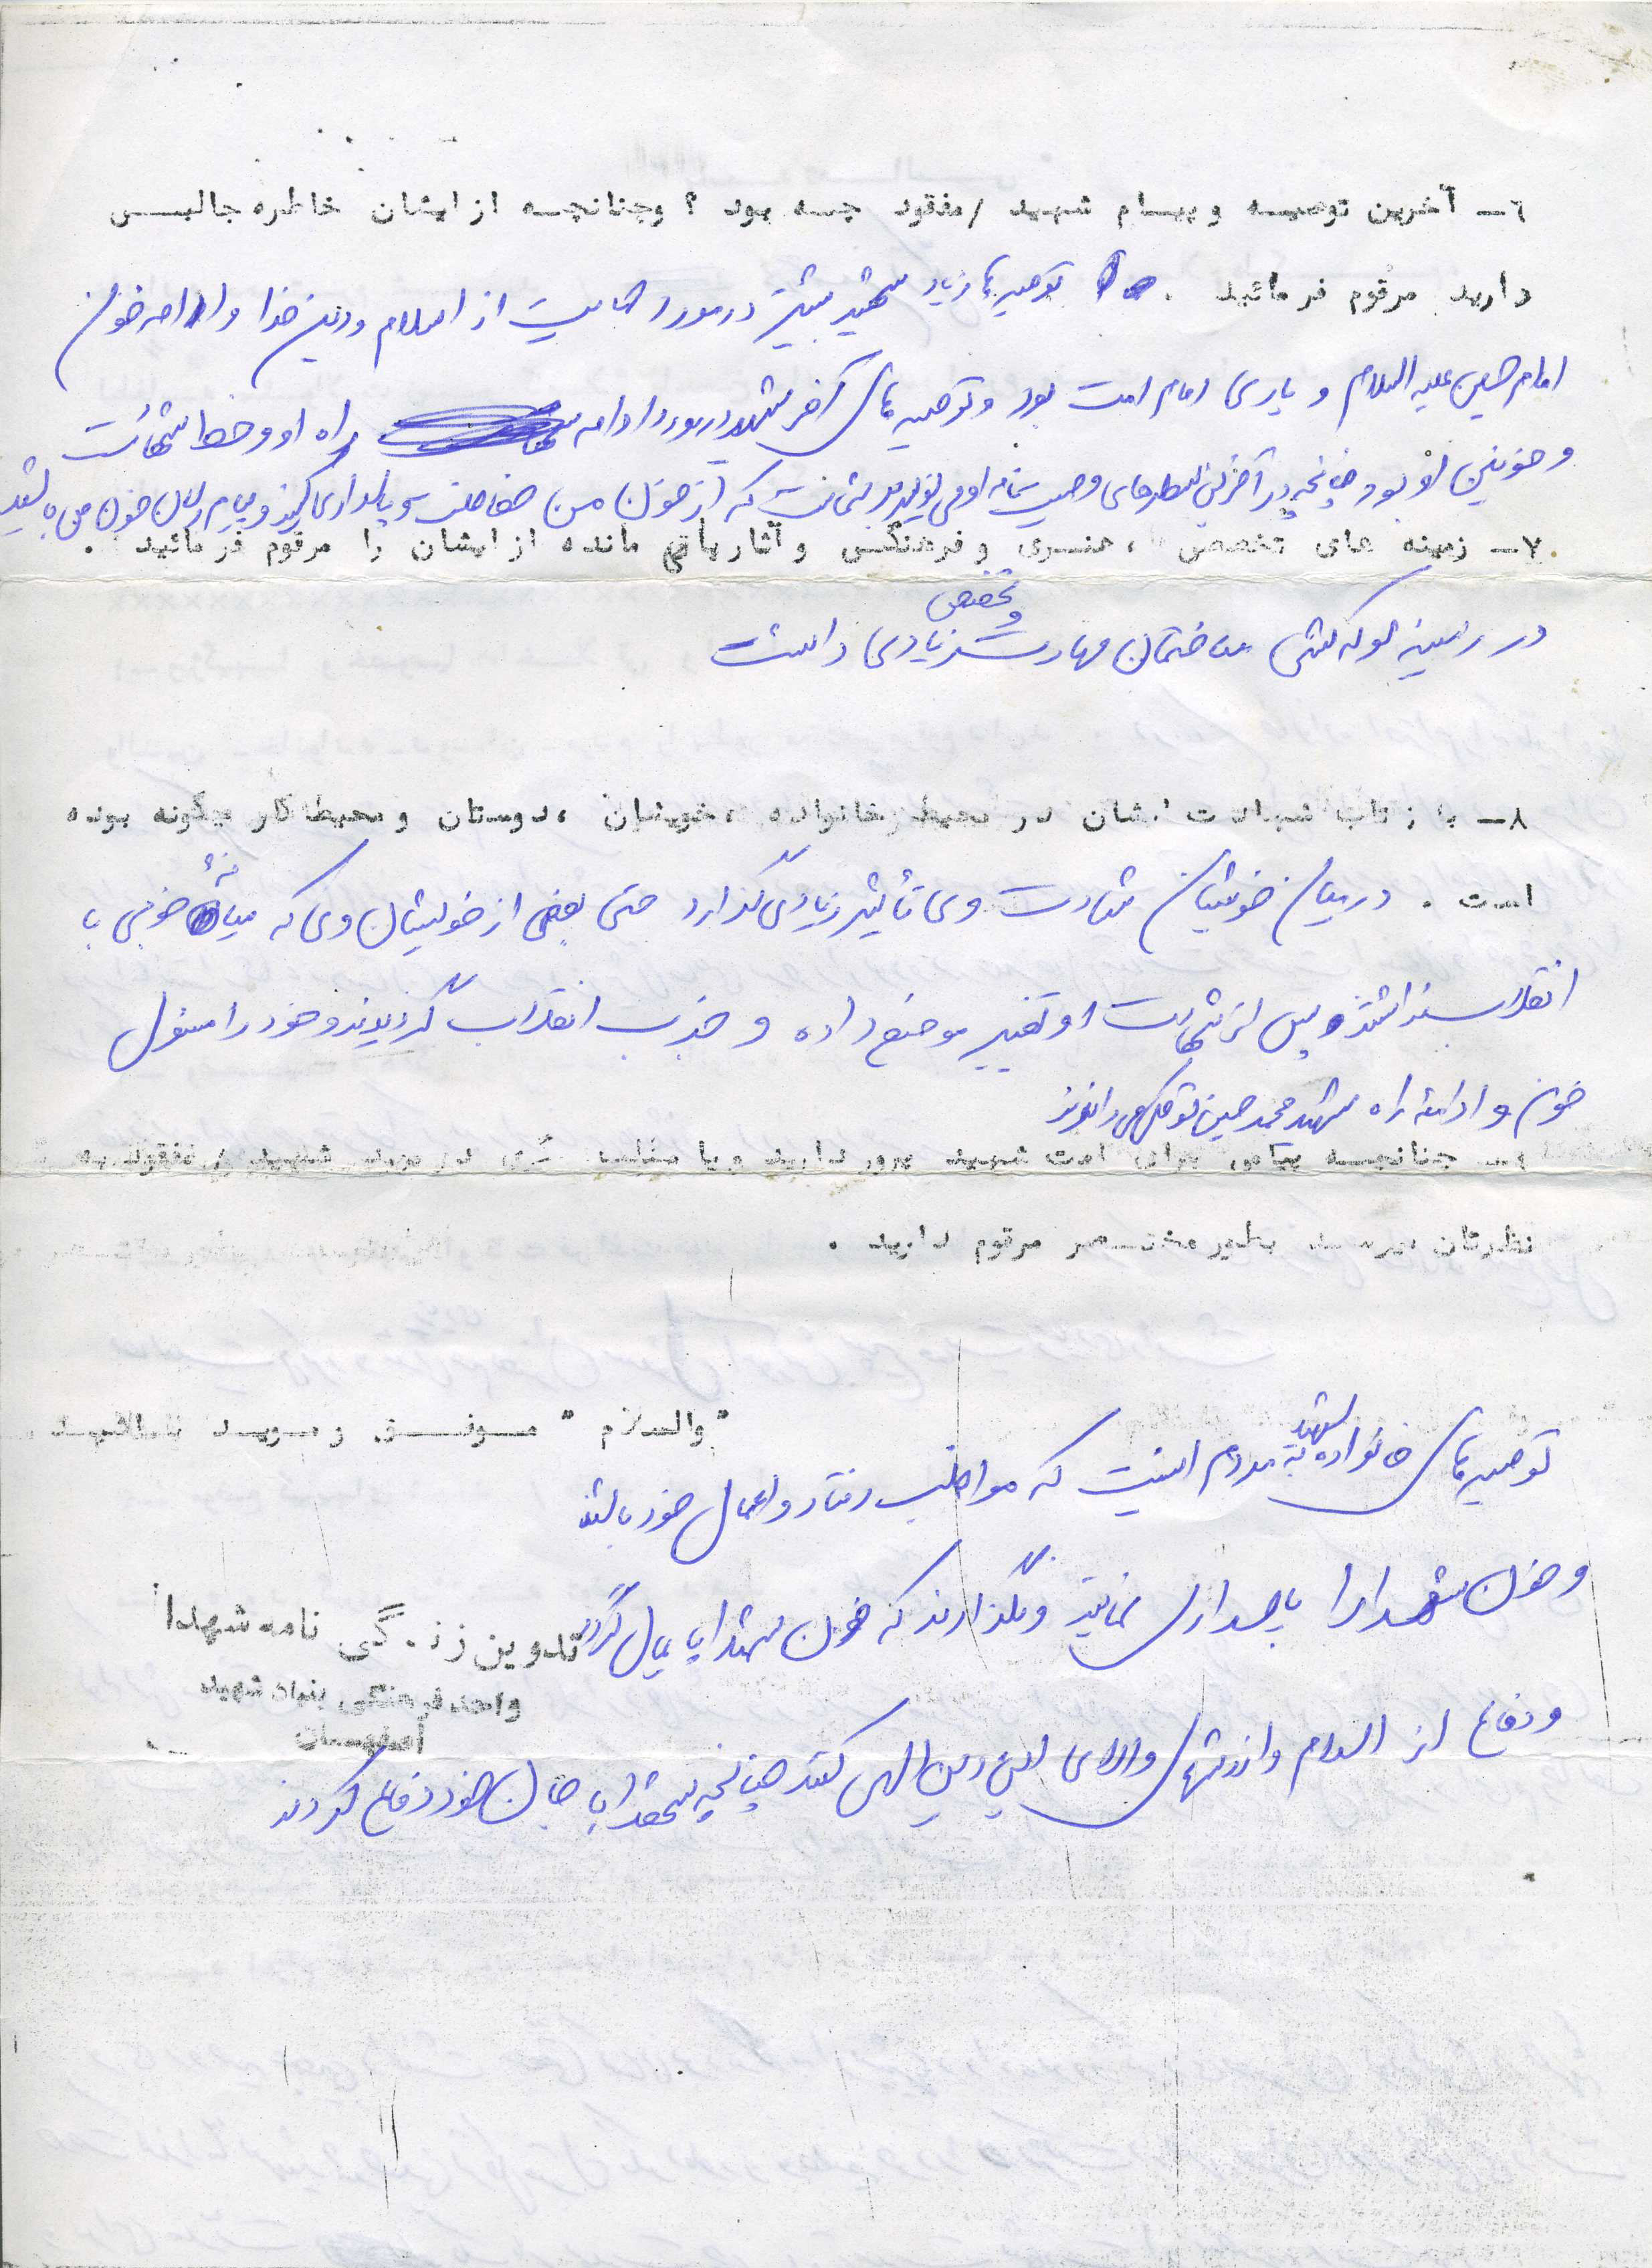 ٦ـ آخرین توصیه و پیام شهید / مفقود چه بود ؟ و چنانچه از ایشان خاطره جالبی
دارید مرقوم فرمائید . توصیه‌ها زیاد شهید بیشتر در مورد حمایت از اسلام و دین خدا و ادامه خون
امام حسین علیه السلام و یاری امام امت بود و توصیه های آخر شهید در مورد ادامه راه او و خط
و خونین او بود چنانچه در آخرین سطرهای وصیت نامه او می که از خون من حفاظت و پاسداری کنید و پیام رسان خون من باشید
٧ـ زمینه های تخصصی ، هنری و فرهنگی و آثار باقی مانده از ایشان را مرقوم فرمائید .
و تخصص
در زمینه لوله کشی ساختمان مهارت زیادی داشت
٨ـ بازتاب شهادت ایشان در محیط خانواده ، خویشان ، دوستان و محیط کار چگونه بوده
است . در میان خویشان شهادت وی تأثیر زیادی گذارد حتی بعضی از خویشان وی که میانه خوبی با
انقلاب نداشتند پس از شهادت او تغییر موضع داده و جذب انقلاب گردیدند و خود را مسئول
خون و ادامه راه شهید محمد حسین
چنانچه پیامی برای امت شهید پرور دارید و یا مطلب دیگری در مورد شهید / مفقود به
نظرتان میرسد بطور مختصر مرقوم دارید .
" والسلام " موفق و موید باشید
توصیه های خانواده شهید به مردم اینست که مواظب رفتار و اعمال خود باشند
و خون شهدا را پاسداری نمایند و نگذارند که خون شهدا پایمال گردد
تدوین زندگی نامه شهدا
واحد فرهنگی بنیاد شهید
اصفهان
و دفاع از اسلام و ارزشهای والای این دین الهی کنند چنانچه شهدا با جان خود دفاع کردند